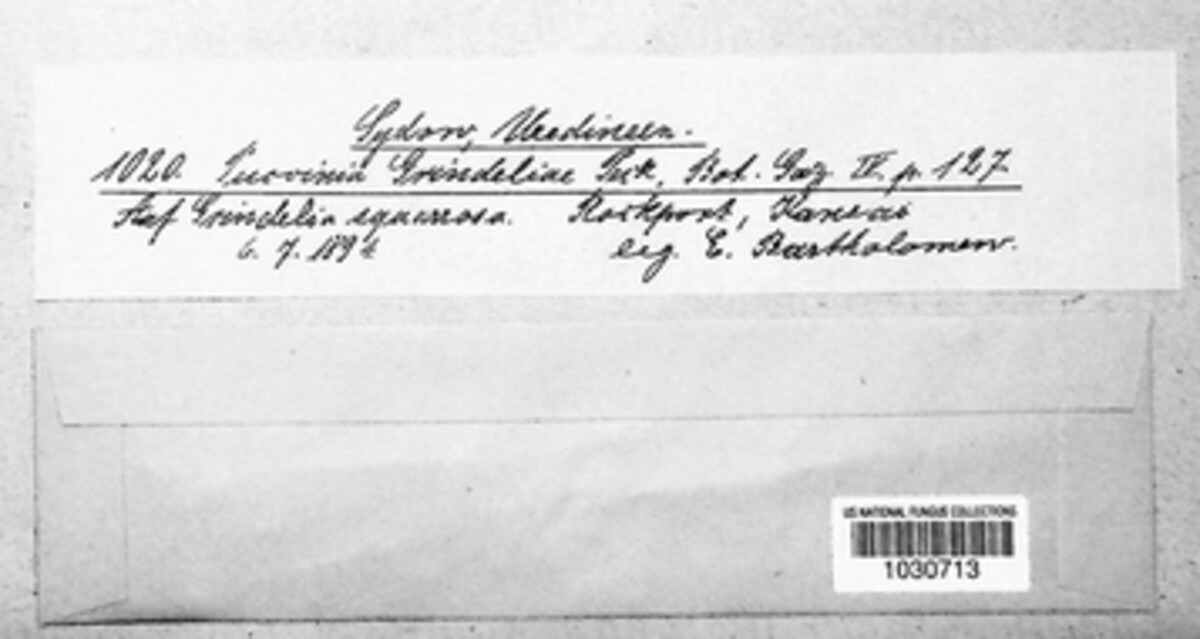 Sydow, Uredineen.
1020. Puccinia Grindeliae Peck, Bot. Gaz. IV. p. 127.
Auf Grindelia squarrosa. Rockport, Kansas
6. 7. 1894 leg. E. Bartholomew.
US NATIONAL FUNGUS COLLECTIONS
1030713